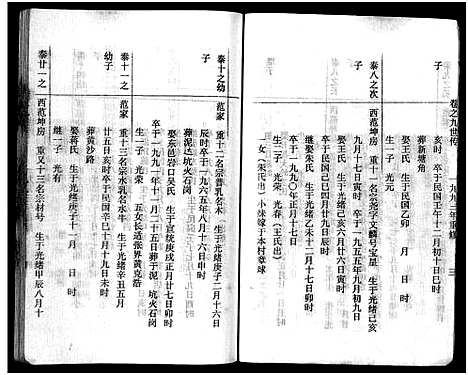 卷之九世传
一九九二年重修
三
亥时 卒于民国壬午十二月初十日巳时
葬新塘角
子
娶王氏 生于民国乙卯 月 日 时
生一子 光元
泰八之次
西范坤房 重十一名宗尧字文麟号宝星 生于光绪己亥
九月十七日寅时 卒于一九五五年九月初九日
娶王氏 生于光绪己亥六月廿六日寅时
卒于民国己巳四月廿八日
继娶朱氏 生于光绪乙未十月二十七日卯时
卒于一九九〇年正月十一日
生一子 光寿(王氏出)
一女(朱氏出)小妹嫁于本村章球
泰十之幼
子
范家 重十二名宗普乳名木 生于光绪庚子二月十六日
辰时卒于一九六五年八月十六日申时
娶东蒋岩口吴氏 生于宣统庚戌正月廿七日卯时
卒于一九九一年十二月二十五日葬于泥坑火石岗
生一子 光荣 五女长适张界黄克浩
泰十一之
幼子
范家 重十三名宗水乳名牛 生于光绪辛丑五月
廿二亥时戌时卒于民国辛巳十月十九日未时
葬黄沙路
娶蒋氏 生于光绪庚子十一月 日 时
继一子 光有
泰廿一之
西范坤房 重又十三名宗村号 生于光绪甲辰八月十